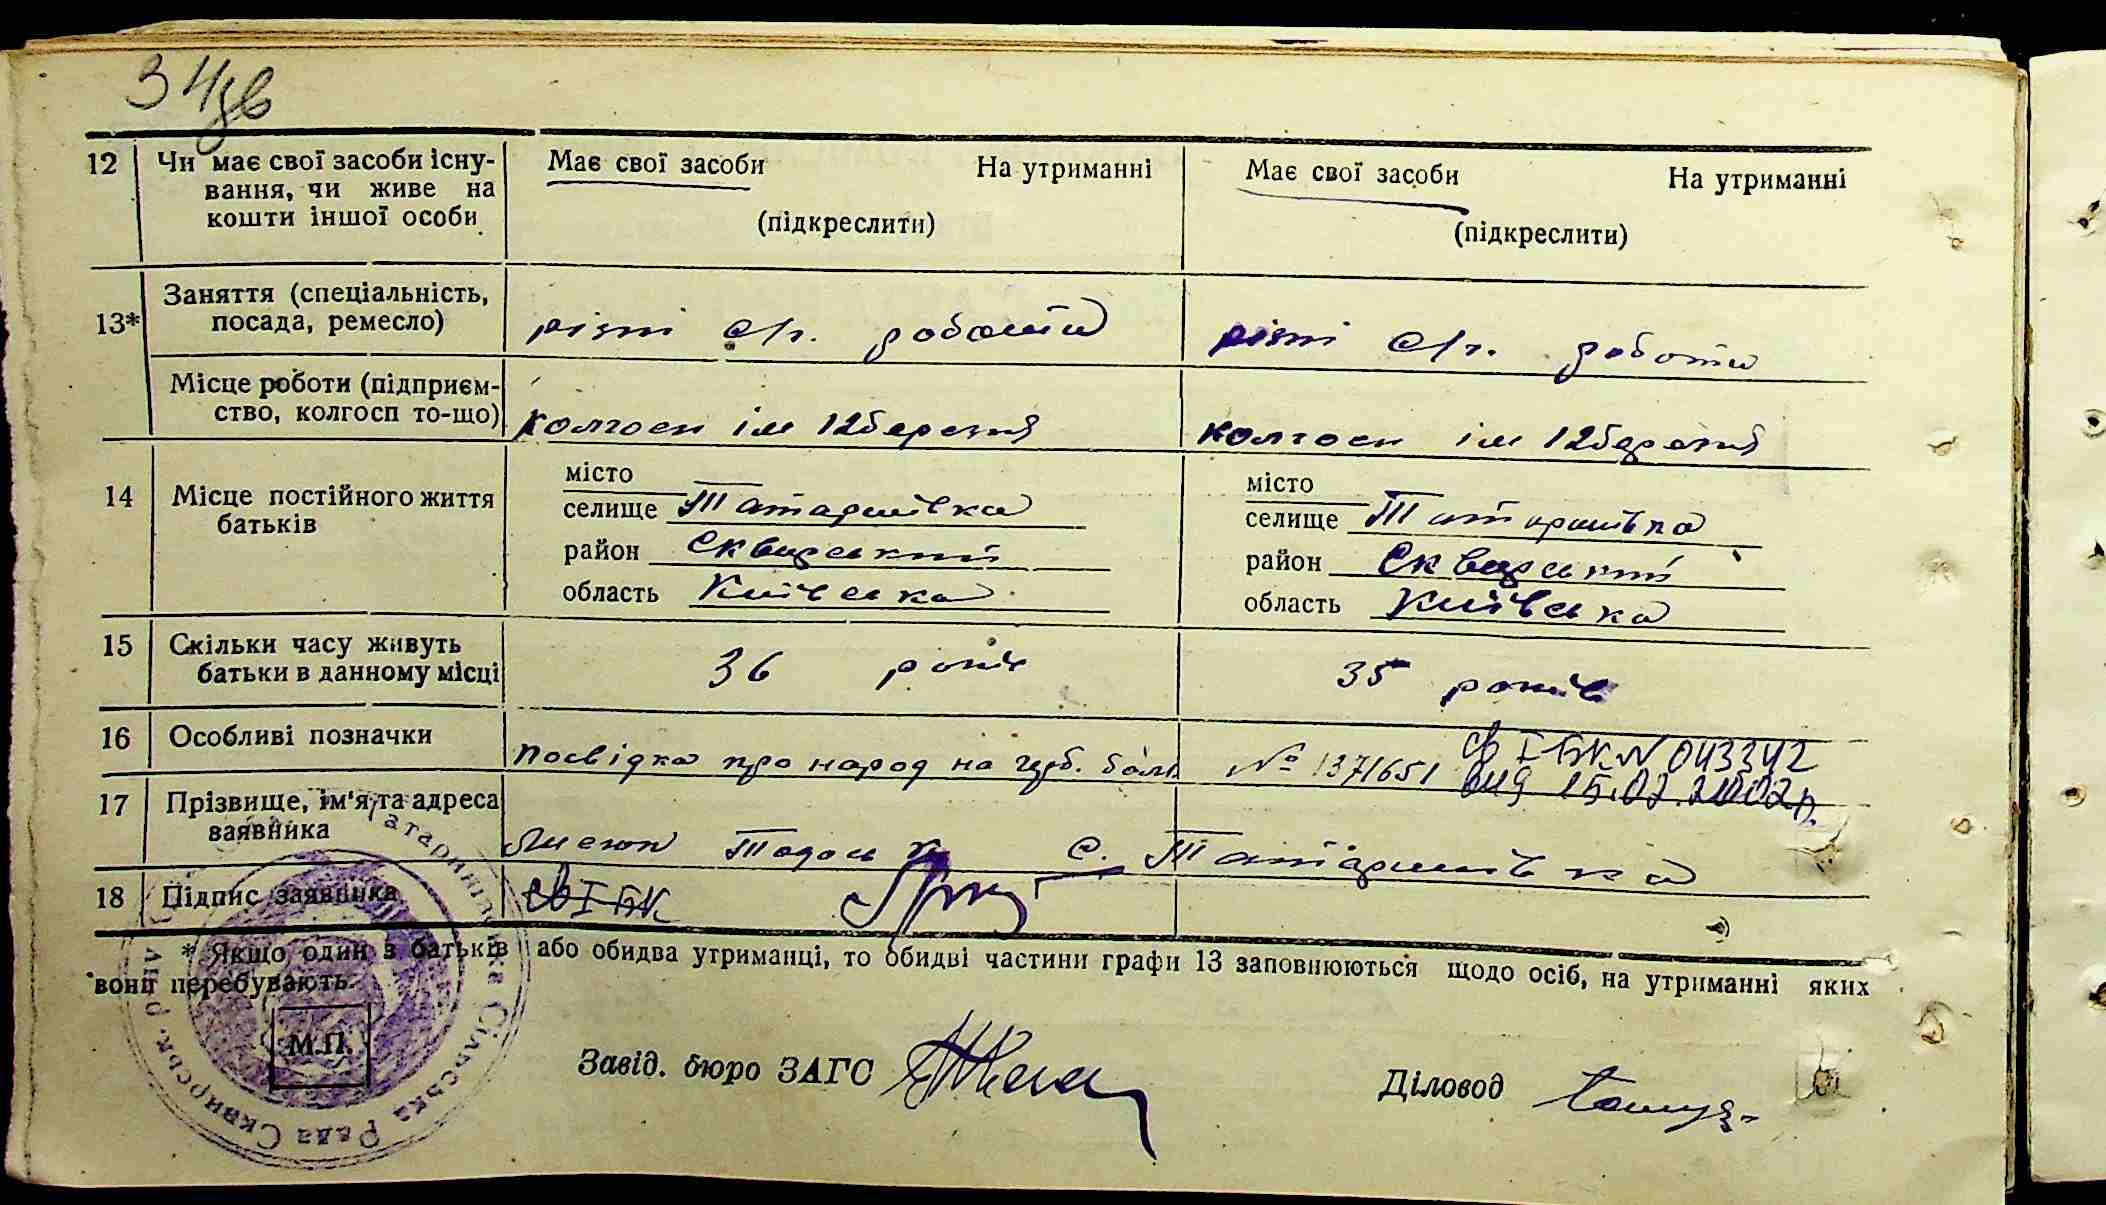 34зв
12 Чи має свої засоби існу- Має свої засоби На утриманні Має свої засоби На утриманні
вання, чи живе на
кошти іншої особи (підкреслити) (підкреслити)
13* Заняття (спеціальність,
посада, ремесло) різні с/г. роботи різні с/г. роботи
Місце роботи (підприєм-
ство, колгосп то-що) колгосп ім 12березня колгосп ім 12березня
14 Місце постійного життя
батьків
місто місто
селище Татаринівка селище Татаринівка
район Сквирський район Сквирський
область Київська область Київська
15 Скільки часу живуть
батьки в данному місці 36 років 35 років
16 Особливі позначки св І-БК N 043342
посвідка про народ на № 1371651 вид 15.02.2002р.
17 Прізвище, ім'я та адреса
заявника Тодось с. Татаринівка
18 Підпис заявника св І БК
* Якщо один з батьків або обидва утриманці, то обидві частини графи 13 заповнюються щодо осіб, на утриманні яких
вони перебувають.
М.П.
Татаринівська Сільська Рада Сквирськ. р-ну
Завід. бюро ЗАГС Діловод